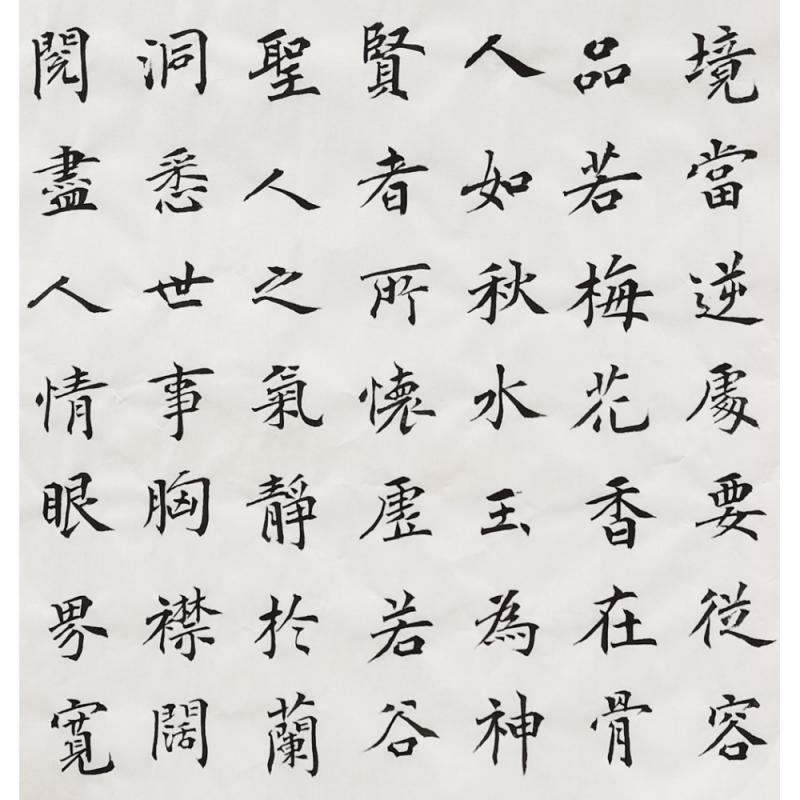 境當逆處要從容
品若梅花香在骨
人如秋水玉為神
賢者所懷虛若谷
聖人之氣靜於蘭
洞悉世事胸襟闊
閱盡人情眼界寬